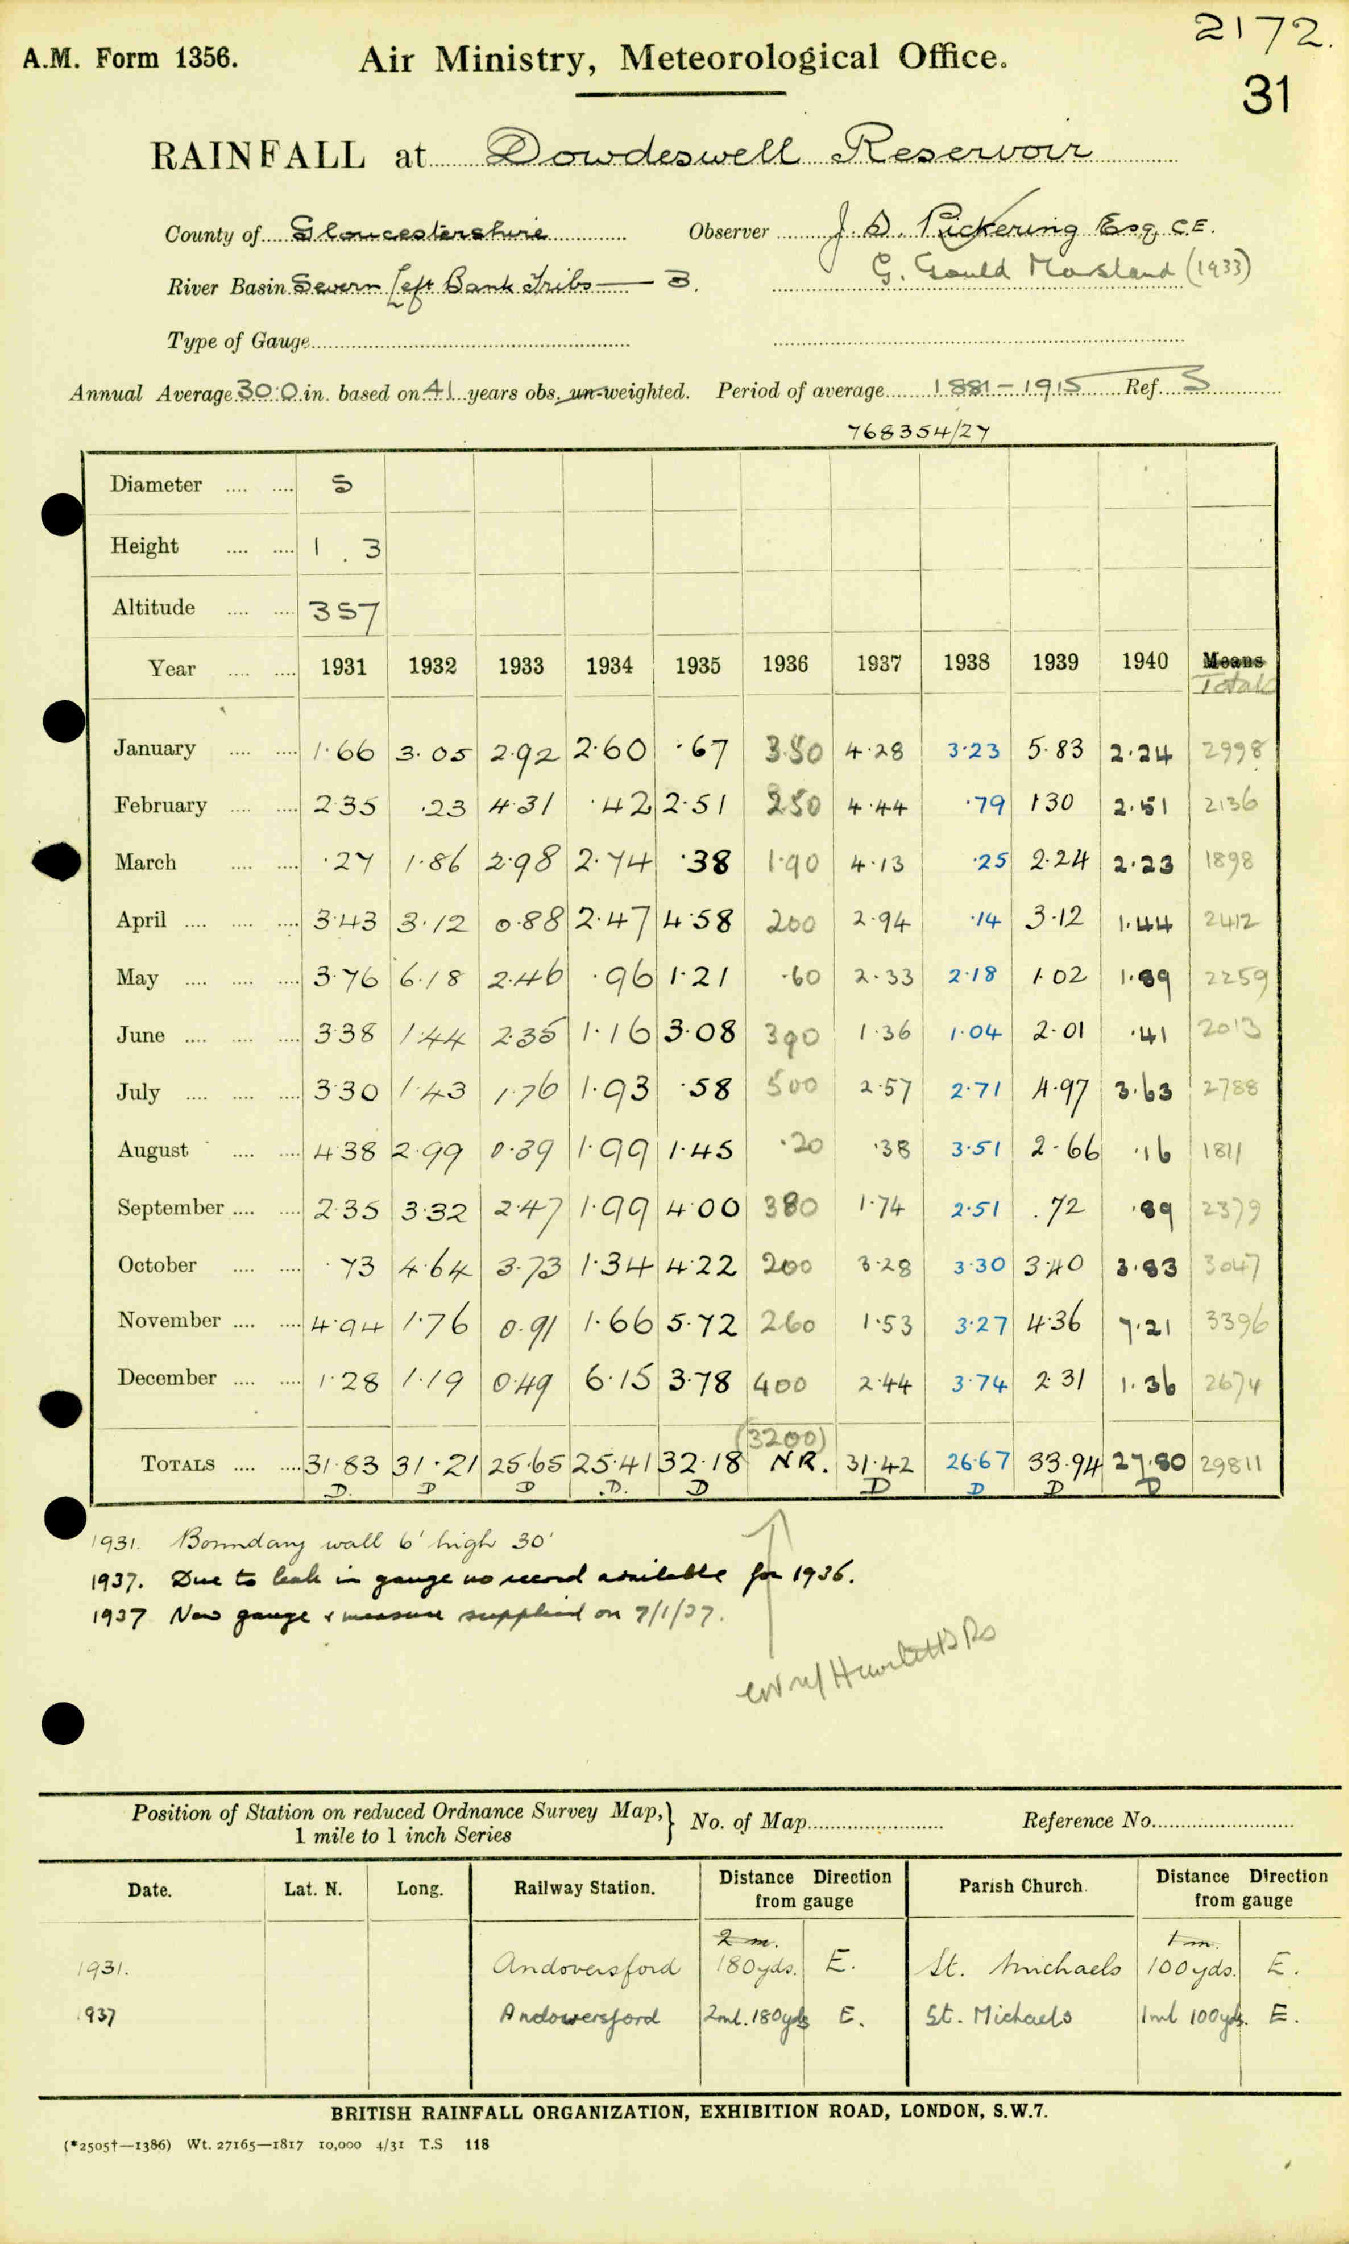 2172.
A.M. Form 1356.
Air Ministry, Meteorological Office.
31
RAINFALL at Dowdeswell Reservoir
County of Gloucestershire Observer J. D. Pickering Esq. C.E.
River Basin Severn Left Bank Tribs — B. G. Gould Marsland (1933)
Type of Gauge
Annual Average 30.0 in. based on 41 years obs. un-weighted. Period of average 1881-1915 Ref. S
768354/27
Diameter 5
Height 1 . 3
Altitude 357
Year 1931 1932 1933 1934 1935 1936 1937 1938 1939 1940 Means
Totals
January 1.66 3.05 2.92 2.60 .67 3.50 4.28 3.23 5.83 2.24 2998
February 2.35 .23 4.31 .42 2.51 250 4.44 .79 1.30 2.51 2136
March .27 1.86 2.98 2.74 .38 1.90 4.13 .25 2.24 2.23 1898
April 3.43 3.12 0.88 2.47 4.58 200 2.94 .14 3.12 1.44 2412
May 3.76 6.18 2.46 .96 1.21 .60 2.33 2.18 1.02 1.89 2259
June 3.38 1.44 2.35 1.16 3.08 390 1.36 1.04 2.01 .41 2013
July 3.30 1.43 1.76 1.93 .58 500 2.57 2.71 4.97 3.63 2788
August 4.38 2.99 0.39 1.99 1.45 .20 .38 3.51 2.66 .16 1811
September 2.35 3.32 2.47 1.99 4.00 380 1.74 2.51 .72 .89 2379
October .73 4.64 3.73 1.34 4.22 200 3.28 3.30 3.40 3.83 3047
November 4.94 1.76 0.91 1.66 5.72 260 1.53 3.27 4.36 7.21 3396
December 1.28 1.19 0.49 6.15 3.78 400 2.44 3.74 2.31 1.36 2674
(3200)
TOTALS 31.83 31.21 25.65 25.41 32.18 N.R. 31.42 26.67 33.94 27.80 29811
D. D D .D. D D D D D
1931. Boundary wall 6' high 30'
1937. Due to leak in gauge no record available for 1936.
1937 New gauge & measure supplied on 7/1/37.
Position of Station on reduced Ordnance Survey Map,
1 mile to 1 inch Series
No. of Map Reference No.
Date. Lat. N. Long. Railway Station. Distance Direction from gauge Parish Church. Distance Direction from gauge
2 m. 1 m.
1931. Andoversford 180yds. E. St. Michaels 100yds. E.
1937 Andoversford 2ml. 180yds E. St. Michaels 1ml 100yds. E.
BRITISH RAINFALL ORGANIZATION, EXHIBITION ROAD, LONDON, S.W.7.
(*2505†—1386) Wt. 27165—1817 10,000 4/31 T.S 118